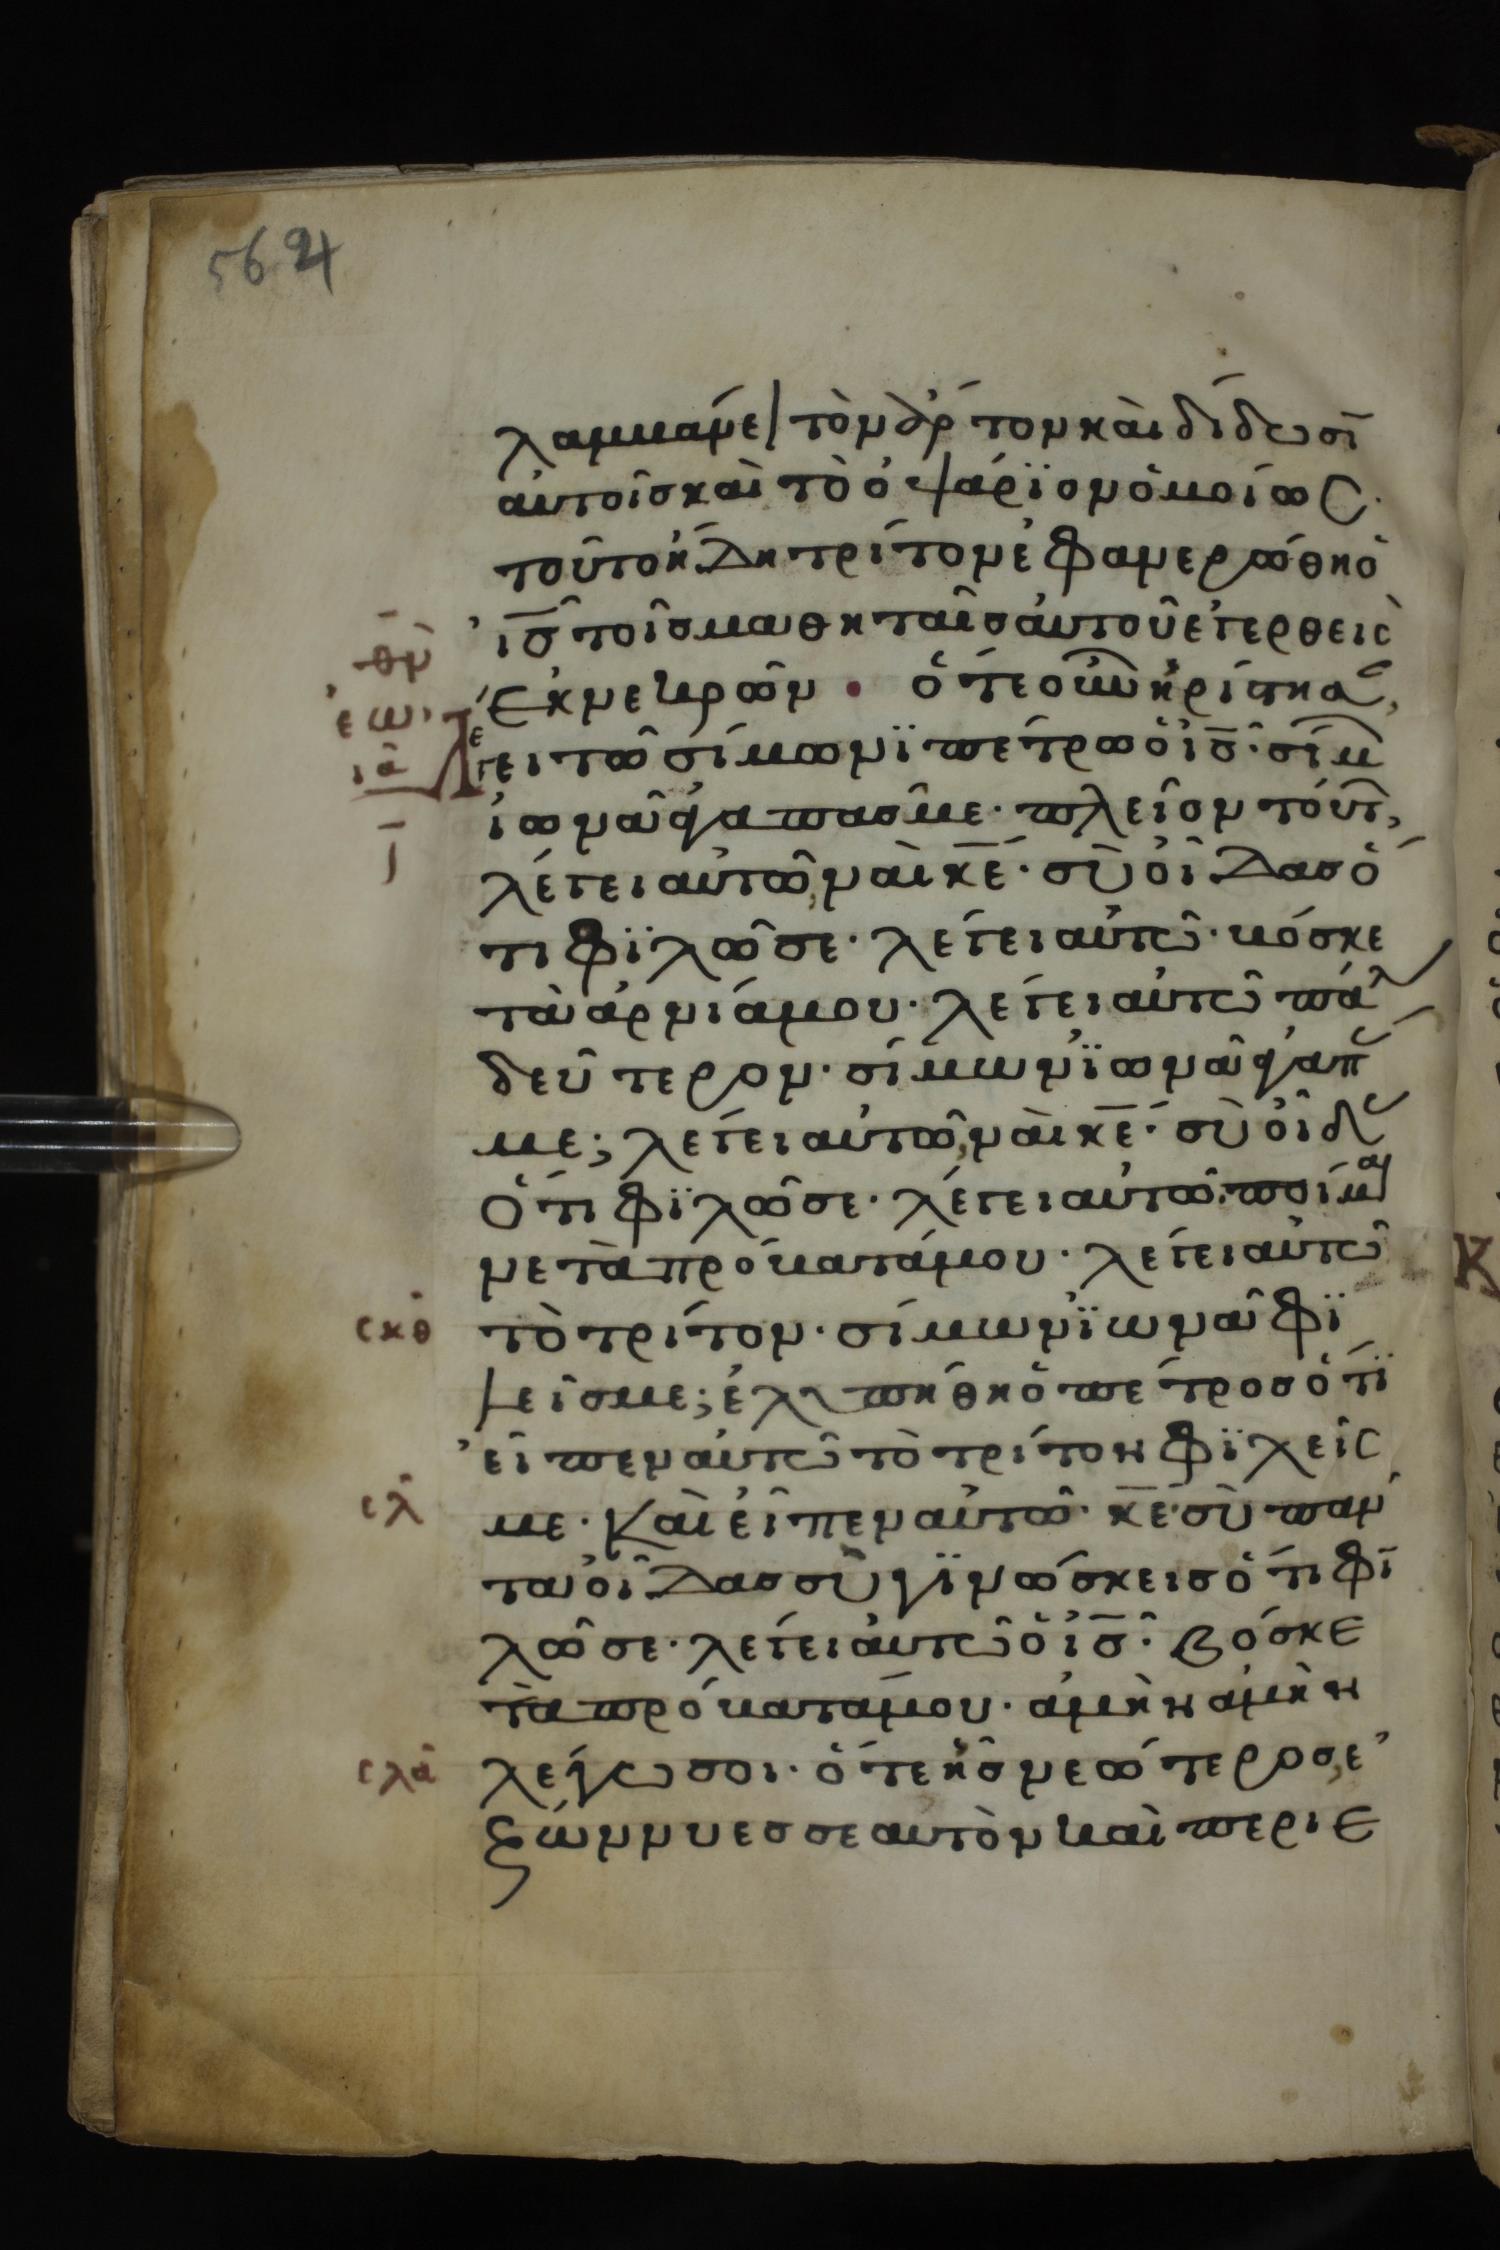 5624
λαμβάνει τὸν ἄρτον καὶ δίδωσϊ
αὐτοῖς καὶ τὸ ὀψάρϊον ὁμοίως·
τοῦτο ἤδη τρίτον ἐφανερώθη ὁ
ἰ̅ς̅ τοῖς μαθηταῖς αὐτοῦ ἐγερθεὶς
ἐκ νεκρῶν · ὅτε οὖν ἠρίστησ,
λέγει τῶ σίμωνϊ πέτρω ὁ ἰ̅ς̅· σίμ
ἰωνᾶ ἀγαπᾶς με· πλεῖον τούτ,
λέγει αὐτῶ, ναὶ κ̅ε̅· σὺ οἶδας ὅ
τι φϊλῶ σε· λέγει αὐτῶ· βόσκε
τὰ ἀρνία μου· λέγει αὐτῶ πάλ
δεύτερον· σίμων ϊωνᾶ ἀγαπ
με; λέγει αὐτῶ, ναὶ κ̅ε̅· σὺ οἶδ
ὅτι φϊλῶ σε· λέγει αὐτῶ· ποίμαι
νε τὰ πρόβατά μου· λέγει αὐτῶ
σκθ τὸ τρίτον· σίμων ϊωνᾶ φϊ
λεῖς με; ἐλυπήθη ὁ πέτρος ὅτϊ
εἶπεν αὐτῶ τὸ τρίτον φϊλεῖς
σλ με· Καὶ εἶπεν αὐτῶ· κ̅ε̅· σὺ πάν
τα οἶδας σὺ γϊνώσκεις ὅτι φϊ
λῶ σε· λέγει αὐτῶ ὁ ἰ̅ς̅· βόσκε
τὰ πρόβατά μου· ἀμὴν ἀμὴν
σλα λέγω σοι· ὅτε ἦς νεώτερος, ἐ
ζώννυες σεαυτὸν καὶ περιε